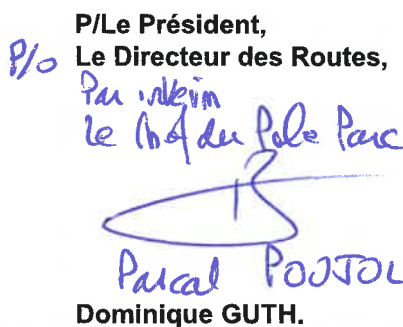 P/Le Président,
P/o Le Directeur des Routes,
Par interim
Le Chef du Pole Parc
Pascal POUJOL
Dominique GUTH.